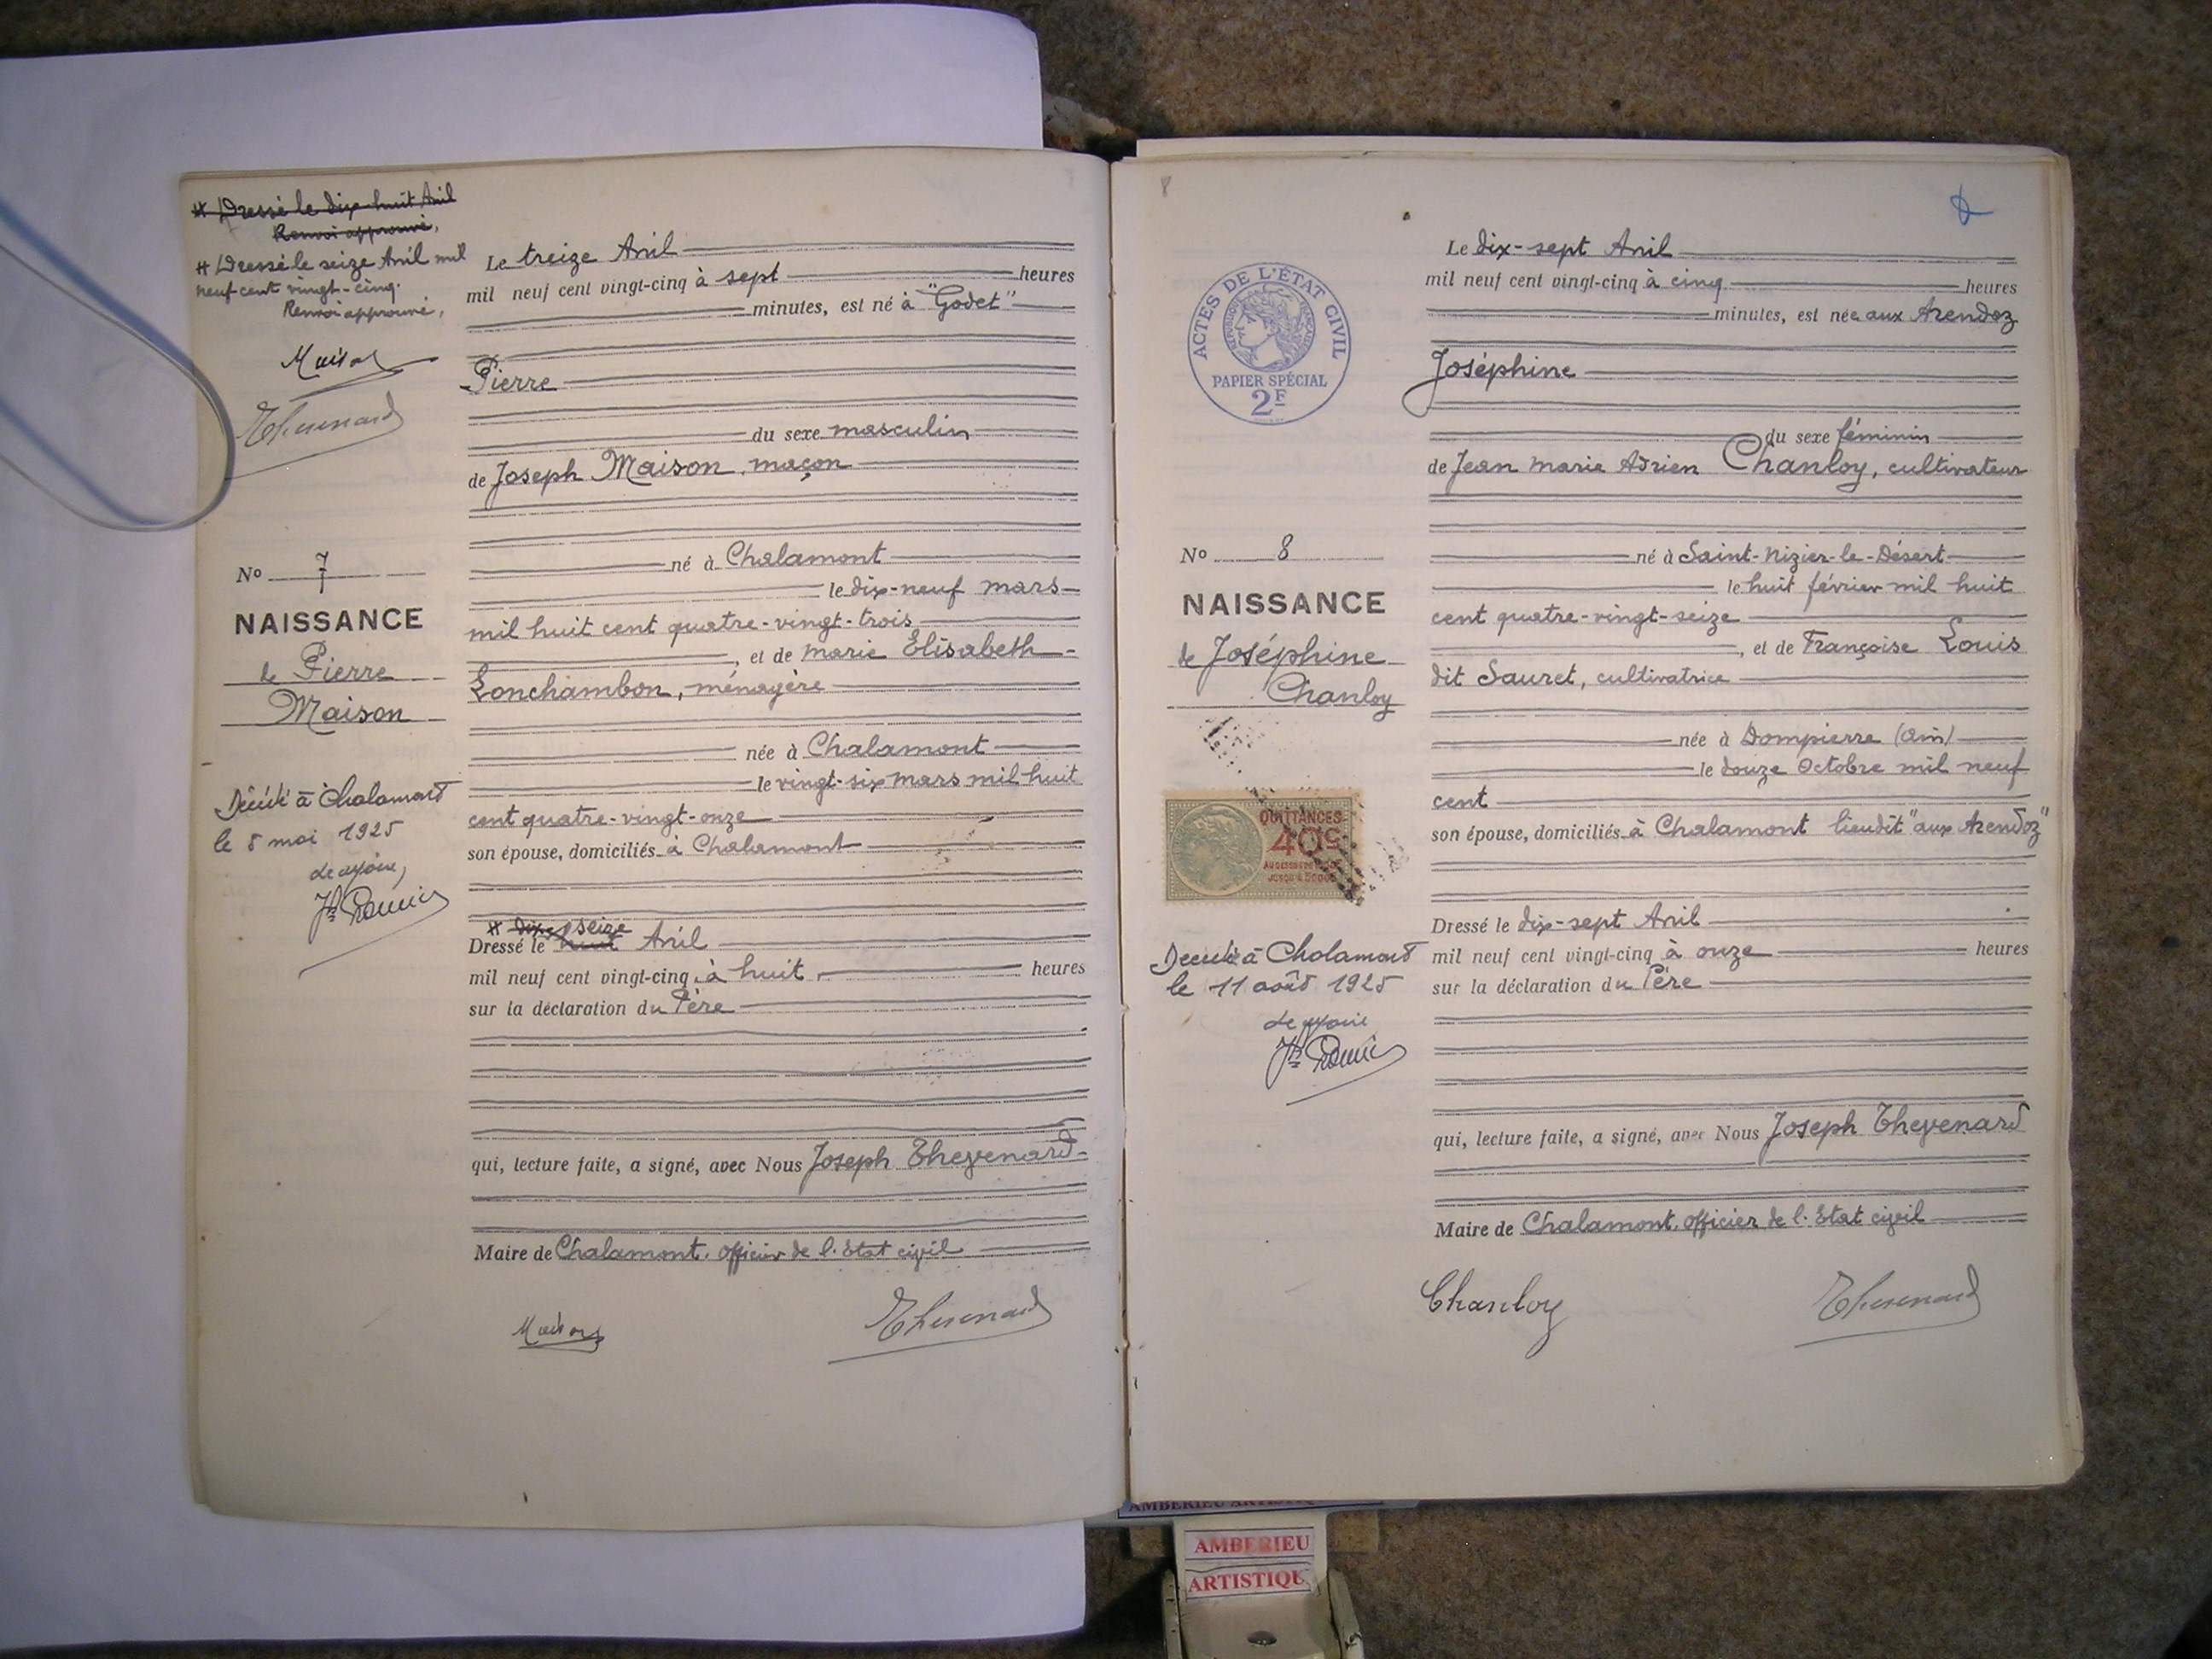 # Dressé le dix-huit Avril
Renvoi approuvé,
# Dressé le seize Avril mil
neuf cent vingt-cinq.
Renvoi approuvé,
Maison
Thevenard
No 7
NAISSANCE
de Pierre
Maison
Décédé à Chalamont
le 8 mai 1925
Le treize Avril
mil neuf cent vingt-cinq à sept heures
minutes, est né à "Godet"
Pierre
du sexe masculin
de Joseph Maison, maçon
né à Chalamont
le dix-neuf mars
mil huit cent quatre-vingt-trois
, et de marie Elisabeth
Lonchambon, ménagère
née à Chalamont
le vingt-six mars mil huit
cent quatre-vingt-onze
son épouse, domiciliés à Chalamont
# dix seize
Dressé le huit Avril
mil neuf cent vingt-cinq, à huit heures
sur la déclaration du Père
qui, lecture faite, a signé, avec Nous Joseph Thevenard
Maire de Chalamont, officier de l'Etat civil
Maison Thevenard
8
ACTES DE L'ÉTAT CIVIL
RÉPUBLIQUE FRANÇAISE
PAPIER SPÉCIAL
2F
No 8
NAISSANCE
de Joséphine
Chanloy
QUITTANCES
40c
Decédée à Chalamont
le 11 août 1925
Le dix-sept Avril
mil neuf cent vingt-cinq à cinq heures
minutes, est née aux Arendoz
Joséphine
du sexe féminin
de Jean marie Adrien Chanloy, cultivateur
né à Saint-Nizier-le-Désert
le huit février mil huit
cent quatre-vingt-seize
, et de Françoise Louis
dit Sauret, cultivatrice
née à Dompierre (Ain)
le douze Octobre mil neuf
cent
son épouse, domiciliés à Chalamont lieudit "aux Arendoz"
Dressé le dix-sept Avril
mil neuf cent vingt-cinq à onze heures
sur la déclaration du Père
qui, lecture faite, a signé, avec Nous Joseph Thevenard
Maire de Chalamont, officier de l'Etat civil
Chanloy Thevenard
AMBERIEU ARTISTIQUE
AMBERIEU
ARTISTIQUE